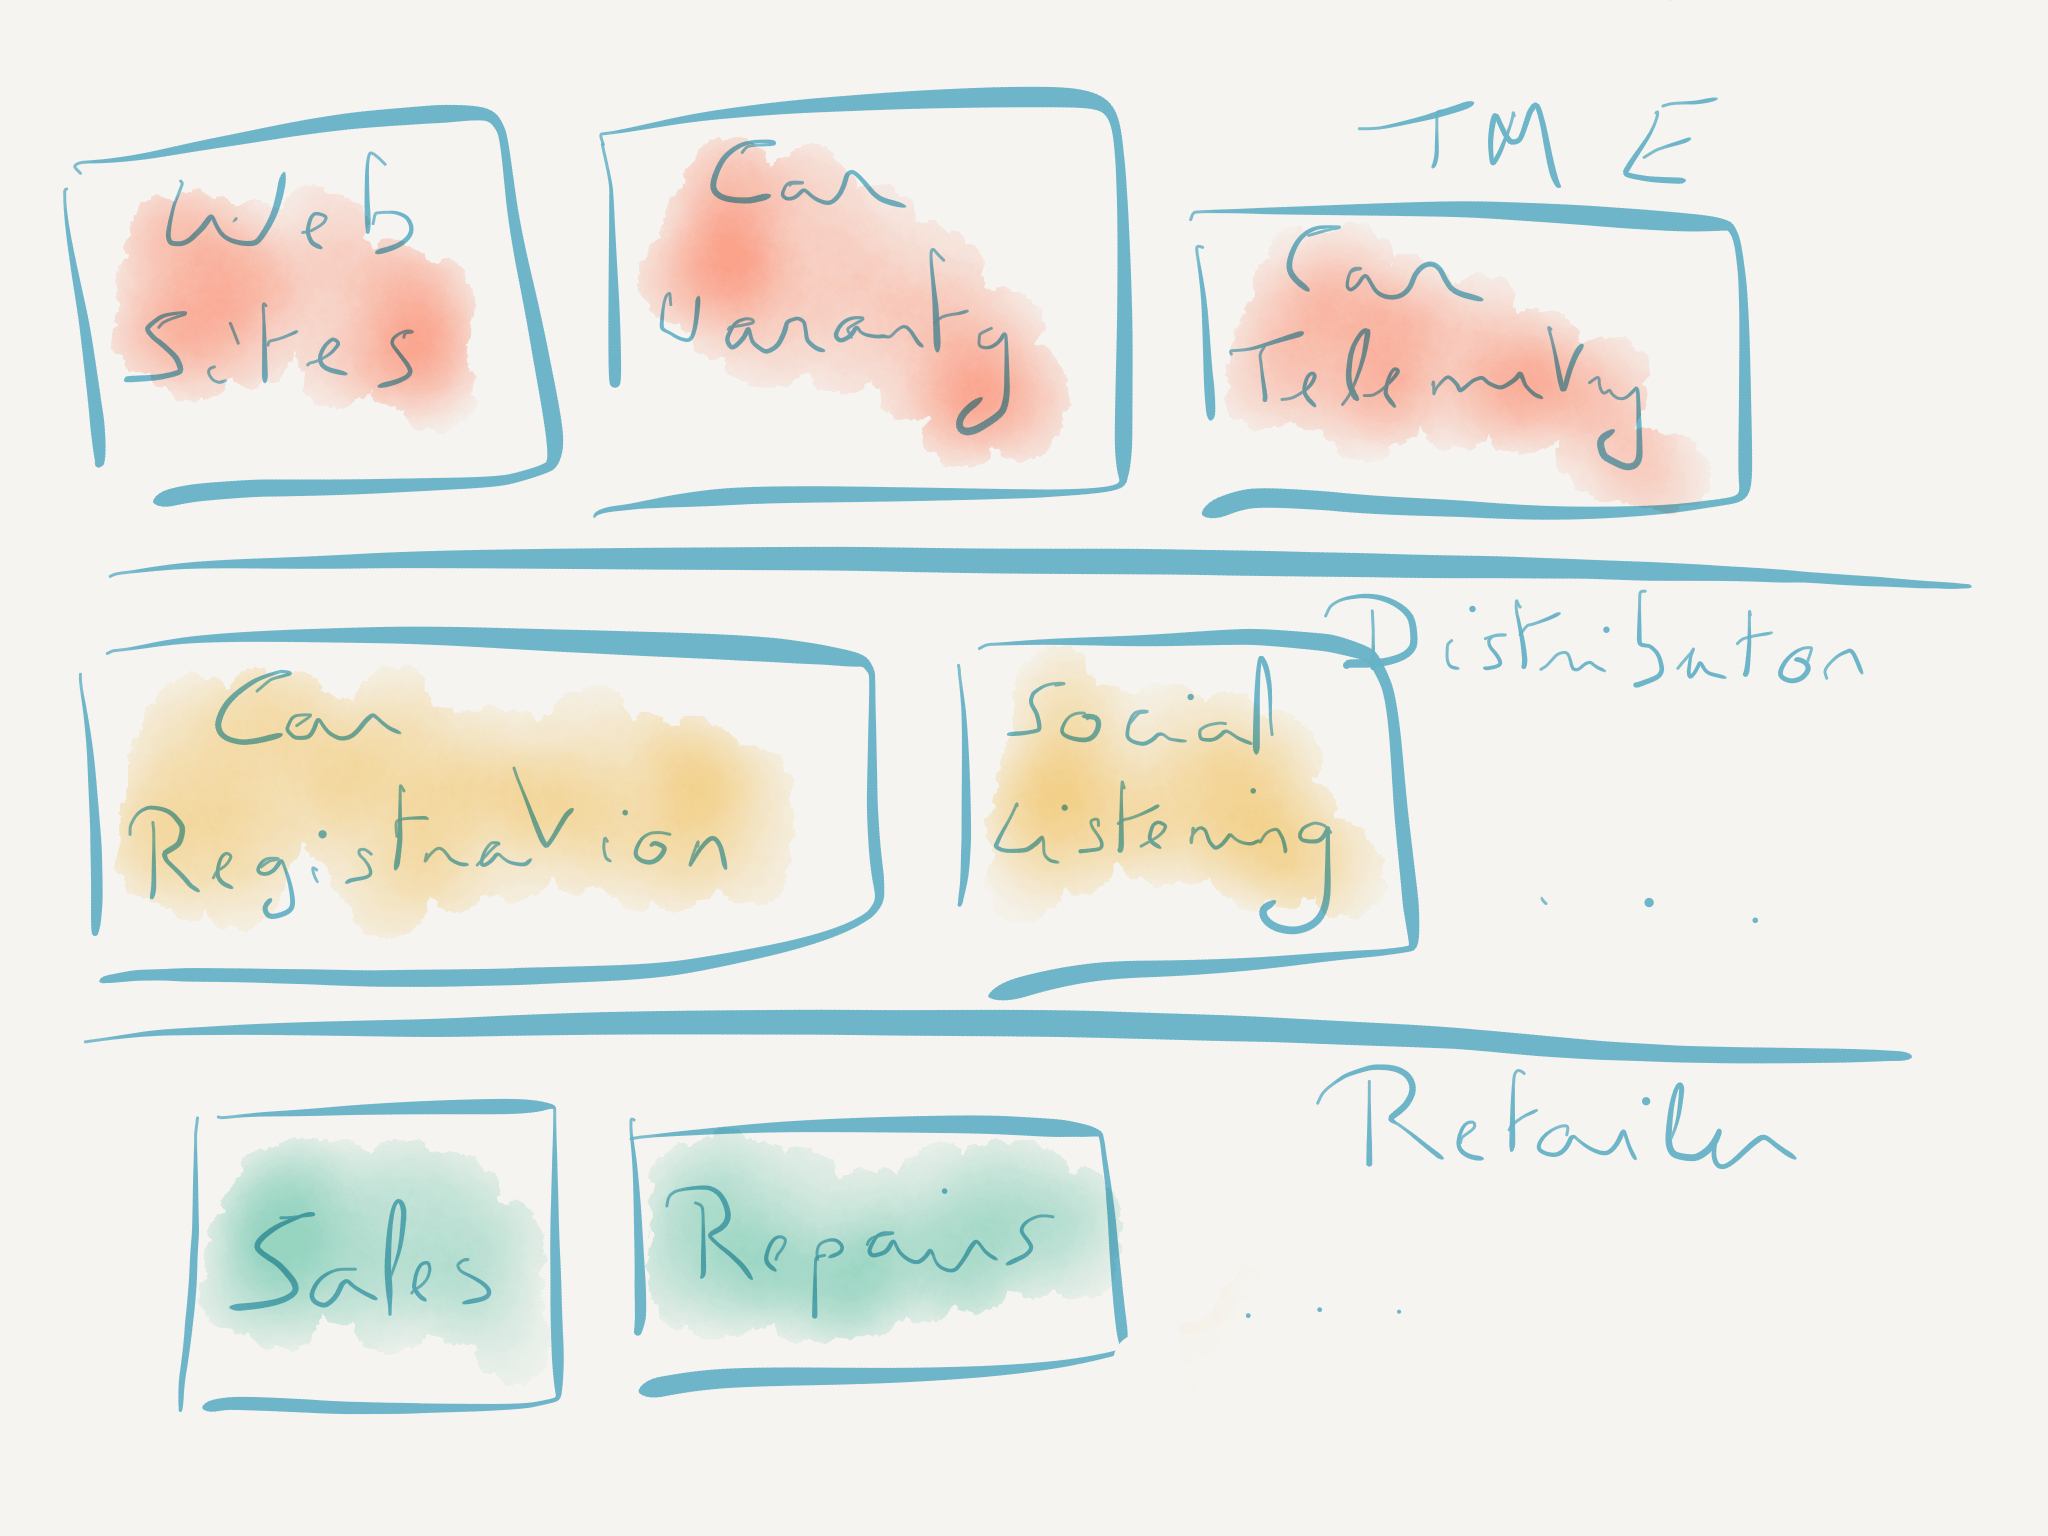 Web
Sites
Car
Waranty
TME
Car
Telemetry
Distributor
Car
Registration
Social
Listening
. . .
Retailer
Sales
Repairs
. . .